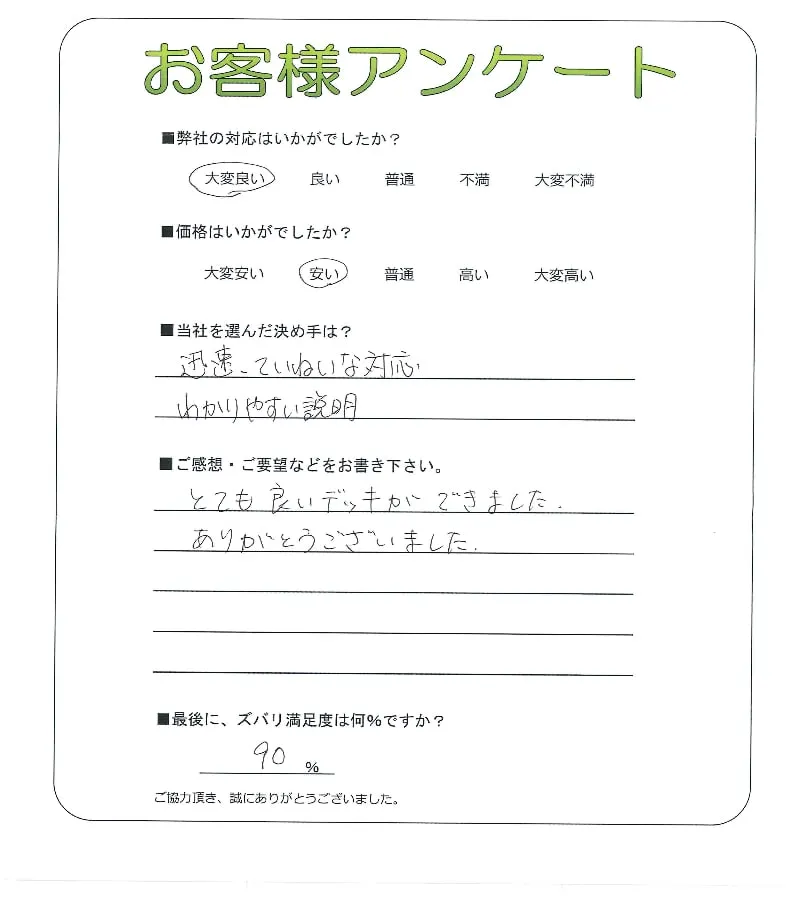 お客様アンケート
■弊社の対応はいかがでしたか？
大変良い 良い 普通 不満 大変不満
■価格はいかがでしたか？
大変安い 安い 普通 高い 大変高い
■当社を選んだ決め手は？
迅速、ていねいな対応
わかりやすい説明
■ご感想・ご要望などをお書き下さい。
とても良いデッキができました.
ありがとうございました.
■最後に、ズバリ満足度は何%ですか？
90 %
ご協力頂き、誠にありがとうございました。